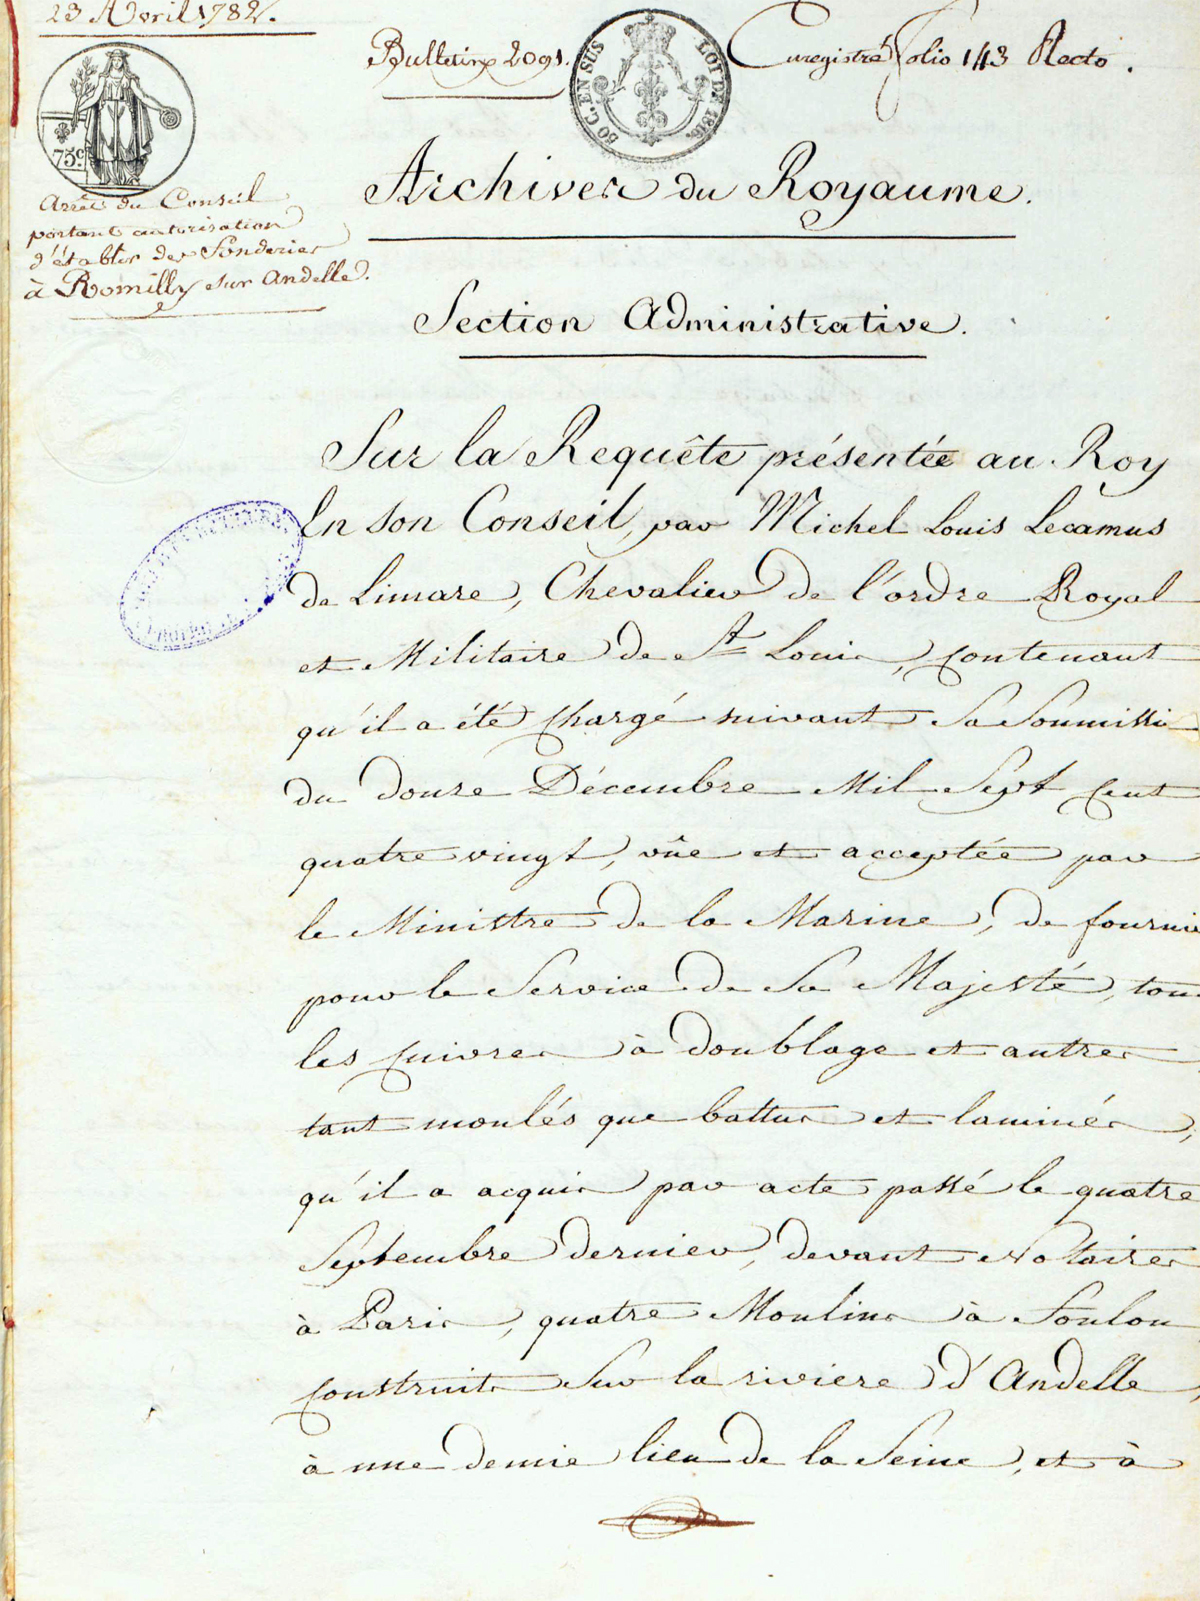 23 Avril 1782.
Bulletin 2091.
Enregistré folio 143 Recto.
50 C. EN SUS LOI DE 1816.
75c
Arrêt du Conseil
portant autorisation
d'établir des Fonderies
à Romilly sur Andelle.
Archives du Royaume.
Section Administrative.
Sur la Requête présentée au Roy
En son Conseil, par Michel Louis Lecamus
de Limare, Chevalier de l'ordre Royal
et Militaire de St Louis, contenant
qu'il a été chargé suivant Sa Soumissi
du douze Décembre Mil Sept Cent
quatre vingt, vûe et acceptée par
le Ministre de la Marine, de fournir
pour le Service de Sa Majesté, tou
les Cuivres à doublage et autres
tant moulés que battus et laminés,
qu'il a acquis par acte passé le quatre
Septembre dernier, devant Notaires
à Paris, quatre Moulins à Foulon
construits Sur la riviere d'Andelle,
à une demie lieu de la Seine, et à